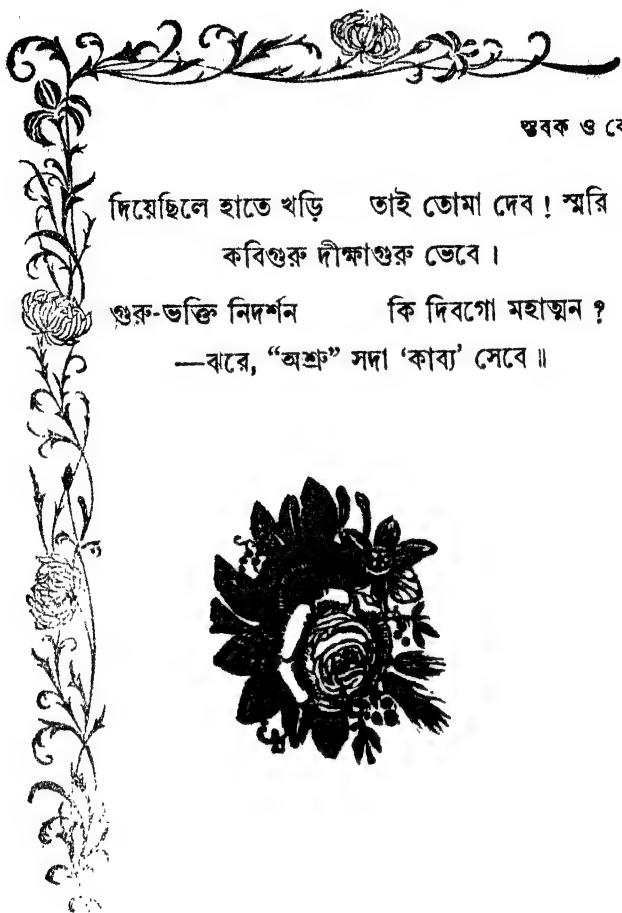 স্তবক ও
দিয়েছিলে হাতে খড়ি তাই তোমা দেব ! স্মরি
কবিগুরু দীক্ষাগুরু ভেবে ।
গুরু-ভক্তি নিদর্শন কি দিবগো মহাত্মন ?
—ঝরে, “অশ্রু” সদা ‘কাব্য’ সেবে ॥